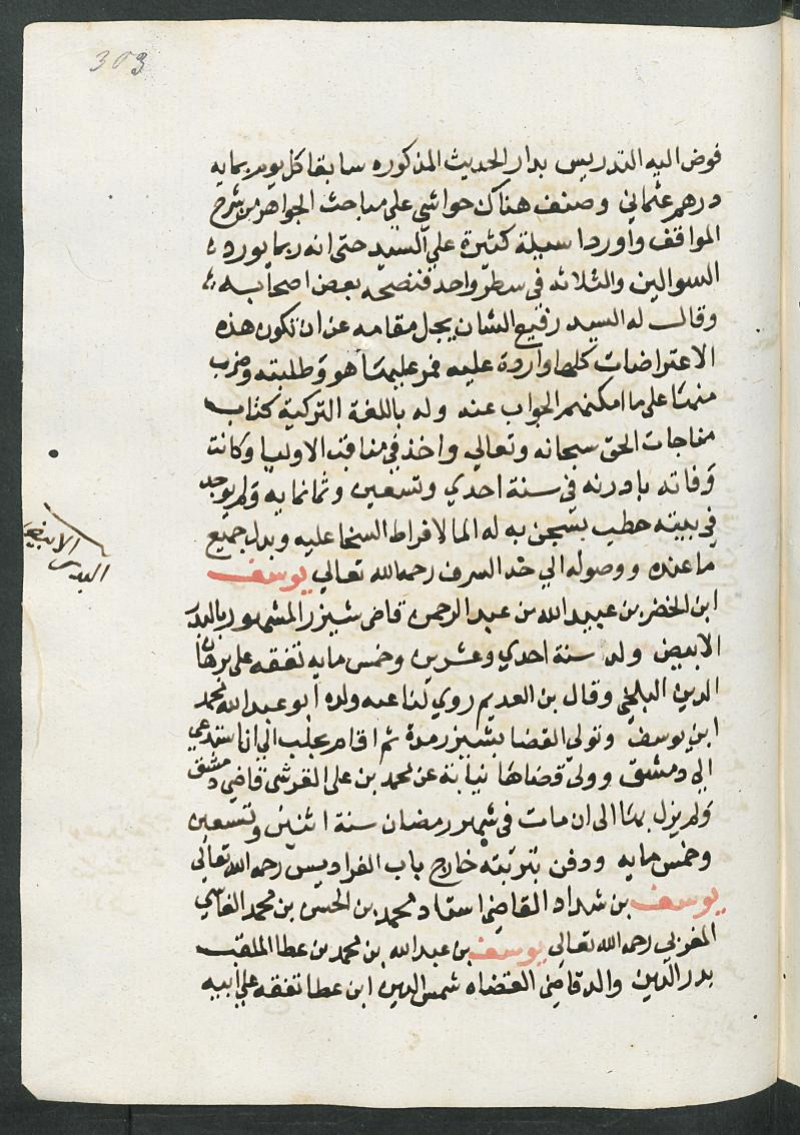 303
فوض اليه التدريس بدار الحديث المذكوره سابقا كل يوم بمايه
درهم عثماني وصنف هناك حواشي علي مباحث الجواهر من شرح
المواقف واورد اسيلة كثيرة علي السيد حتى انه ربما يورد
السوالين والثلاثه في سطر واحد فنصحه بعض اصحابه
وقال له السيد رفيع الشان يجل مقامه عن ان تكون هذه
الاعتراضات كلها واردة عليه فمر عليها هو وطلبته وضرب
منها على ما امكنهم الجواب عنه وله باللغة التركية كتاب
مناجات الحق سبحانه وتعالي واخذ في مناقب الاوليا وكانت
وفاته بادرنه في سنة احدي وتسعين وثمانمايه ولم يوجد
في بيته حطب يسخن به له الما لافراط السخا عليه وبدل جميع
ما عنده ووصوله الي حد السرف رحمه الله تعالي يوسف
ابن الخضر بن عبيد الله بن عبد الرحمن قاضي شيزر المشهور بالبدر
الابيض ولد سنة احدي وعشرين وخمس مايه تفقه على برهان
الدين البلخي وقال بن العديم روي لنا عنه ولده ابو عبد الله محمد
ابن يوسف وتولي القضا بشيزر مدة ثم اقام بحلب الي ان استدعي
الي دمشق وولي قضاها نيابة عن محمد بن علي القرشي قاضي دمشق
ولم يزل بها الى ان مات في شهر رمضان سنة اثنين وتسعين
وخمس مايه ودفن بتربته خارج باب الفراديس رحمه الله تعالي
يوسف بن شداد القاضي استاد محمد بن الحسن بن محمد الفاسي
المغربي رحمه الله تعالي يوسف بن عبد الله بن محمد بن عطا الملقب
بدر الدين والد قاضي القضاه شمس الدين ابن عطا تفقه علي ابيه
البدر الابيض